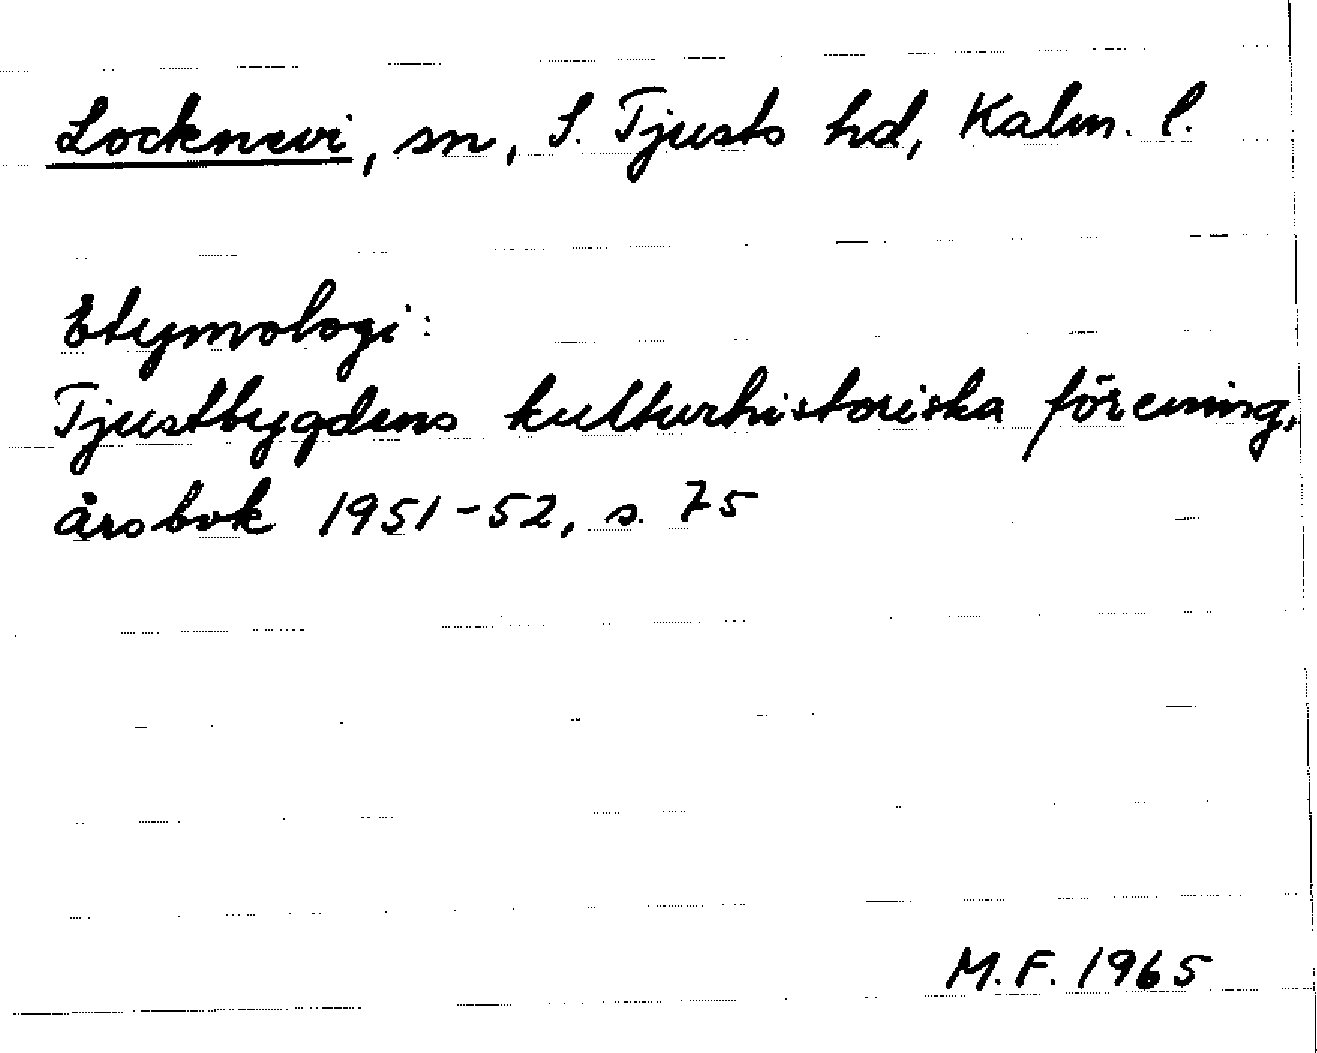 Locknevi, sn, S. Tjusts hd, Kalm. l.
Etymologi:
Tjustbygdens kulturhistoriska förening,
årsbok 1951-52, s. 75
M.F. 1965